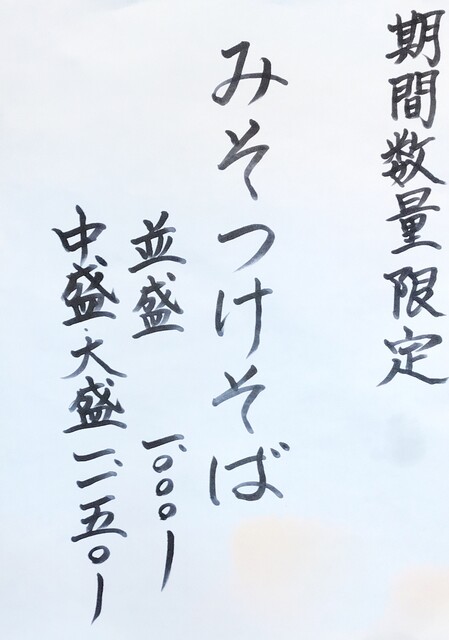 期間数量限定
みそつけそば
並盛 一、〇〇〇ー
中盛・大盛 一、一五〇ー